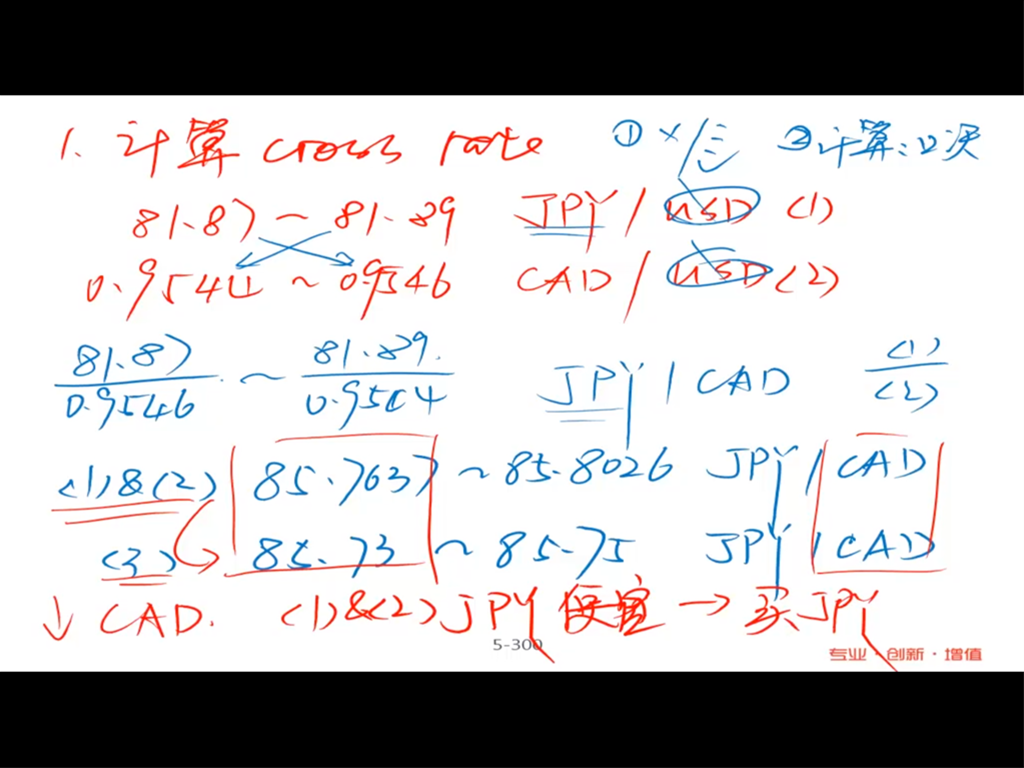 1. 计算 cross rate ① ×/÷ ②计算:2次
81.87 ~ 81.89 JPY / USD (1)
0.9544 ~ 0.9546 CAD / USD (2)
81.87 / 0.9546 ~ 81.89. / 0.9544 JPY / CAD (1) / (2)
(1)&(2) 85.7637 ~ 85.8026 JPY / CAD
(3) 85.73 ~ 85.75 JPY / CAD
↓ CAD. (1)&(2) JPY 便宜 → 买JPY
5-300
专业·创新·增值